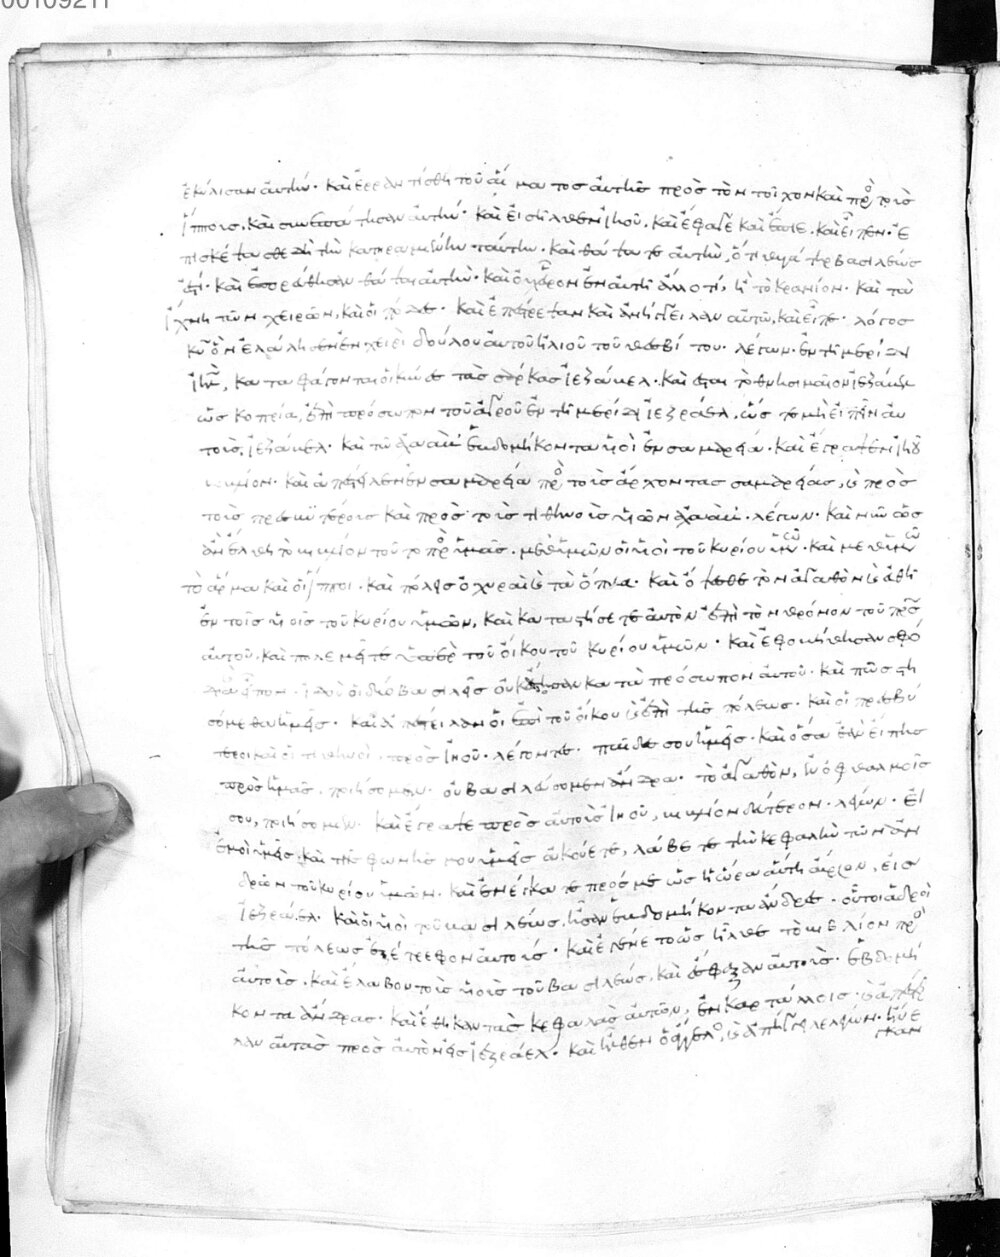 00109211
ἐκύλισαν αὐτήν· καὶ ἐρραντίσθη τοῦ αἵματος αὐτῆς πρὸς τὸν τοῖχον καὶ πρὸς τοὺς
ἵππους, καὶ συνεπάτησαν αὐτήν· καὶ εἰσῆλθεν ἰηοῦ, καὶ ἔφαγε καὶ ἔπιε, καὶ εἶπεν· ἐ
πισκέψασθε δὴ τὴν κατηραμένην ταύτην· καὶ θάψατε αὐτήν, ὅτι θυγάτηρ βασιλέως
ἐστί· καὶ ἐπορεύθησαν θάψαι αὐτήν· καὶ οὐχ εὗρον ἐν αὐτῇ ἄλλο τί, ἢ τὸ κρανίον· καὶ τὰ
ἴχνη τῶν χειρῶν, καὶ οἱ πόδες· καὶ ἐπέστρεψαν καὶ ἀνήγγειλαν αὐτῷ, καὶ εἶπε· λόγος
κυ ὃν ἐλάλησεν ἐν χειρὶ δούλου αὐτοῦ ἠλιοῦ τοῦ θεσβίτου· λέγων· ἐν τῇ μερίδι
καταφάγονται οἱ κύνες τὰς σάρκας ἰεζάβελ· καὶ ἔσται τὸ θνησιμαῖον ἰεζάβελ
ὡς κοπρία, ἐπὶ πρόσωπον τοῦ ἀγροῦ ἐν τῇ μερίδι ἰεζράελ, ὥστε μὴ εἰπεῖν αὐ
τούς, ἰεζάβελ· καὶ τῷ ἀχαὰβ ἑβδομήκοντα υἱοὶ ἐν σαμαρείᾳ· καὶ ἔγραψεν ἰηοῦ
βιβλίον· καὶ ἀπέστειλεν ἐν σαμαρείᾳ πρὸς τοὺς ἄρχοντας σαμαρείας, καὶ πρὸς
τοὺς πρεσβυτέρους καὶ πρὸς τοὺς τιθηνοὺς υἱῶν ἀχαάβ· λέγων· καὶ νῦν ὡς
ἂν ἔλθῃ τὸ βιβλίον τοῦτο πρὸς ὑμᾶς· μεθ ὑμῶν οἱ υἱοὶ τοῦ κυρίου ὑμῶν· καὶ μεθ ὑμῶν
τὸ ἅρμα καὶ οἱ ἵπποι· καὶ πόλεις ὀχυραὶ καὶ τὰ ὅπλα· καὶ ὄψεσθε τὸν ἀγαθὸν καὶ εὐθῆ
ἐν τοῖς υἱοῖς τοῦ κυρίου ὑμῶν, καὶ καταστήσετε αὐτὸν ἐπὶ τὸν θρόνον τοῦ πρς
αὐτοῦ· καὶ πολεμεῖτε ὑπὲρ τοῦ οἴκου τοῦ κυρίου ὑμῶν· καὶ ἐφοβήθησαν σφό
δρα εἶπον· ἰδοὺ οἱ δύο βασιλεῖς οὐκ ἔστησαν κατὰ πρόσωπον αὐτοῦ· καὶ πῶς στη
σόμεθα ἡμεῖς· καὶ ἀπέστειλαν οἱ ἐπὶ τοῦ οἴκου καὶ ἐπὶ τῆς πόλεως· καὶ οἱ πρεσβύ
τεροι καὶ οἱ τιθηνοὶ, πρὸς ἰηοῦ· λέγοντες· παῖδές σου ἡμεῖς· καὶ ὅσα ἐὰν εἴπῃς
πρὸς ἡμᾶς, ποιήσομεν· οὐ βασιλεύσομεν ἄνδρα· τὸ ἀγαθὸν, ἐν ὀφθαλμοῖς
σου, ποιήσομεν· καὶ ἔγραψε πρὸς αὐτοὺς ἰηοῦ, βιβλίον δεύτερον· λέγων· εἰ
ἐμοὶ ὑμεῖς καὶ τῆς φωνῆς μου ὑμεῖς ἀκούετε, λάβετε τὴν κεφαλὴν τῶν ἀν
δρῶν τοῦ κυρίου ὑμῶν· καὶ ἐνέγκατε πρός με ὡς ἡ ὥρα αὕτη αὔριον, εἰς
ἰεζράελ· καὶ οἱ υἱοὶ τοῦ βασιλέως, ἦσαν ἑβδομήκοντα ἄνδρες· οὗτοι ἁδροὶ
τῆς πόλεως ἐξέτρεφον αὐτούς· καὶ ἐγένετο ὡς ἦλθε τὸ βιβλίον πρὸς
αὐτοὺς· καὶ ἔλαβον τοὺς υἱοὺς τοῦ βασιλέως, καὶ ἔσφαξαν αὐτοὺς· ἑβδομή
κοντα ἄνδρας· καὶ ἔθηκαν τὰς κεφαλὰς αὐτῶν, ἐν καρτάλλοις· καὶ ἀπέστει
λαν αὐτὰς πρὸς αὐτὸν εἰς ἰεζράελ· καὶ ἦλθεν ὁ ἄγγελος, καὶ ἀπήγγειλε λέγων· ἤνε
γκαν